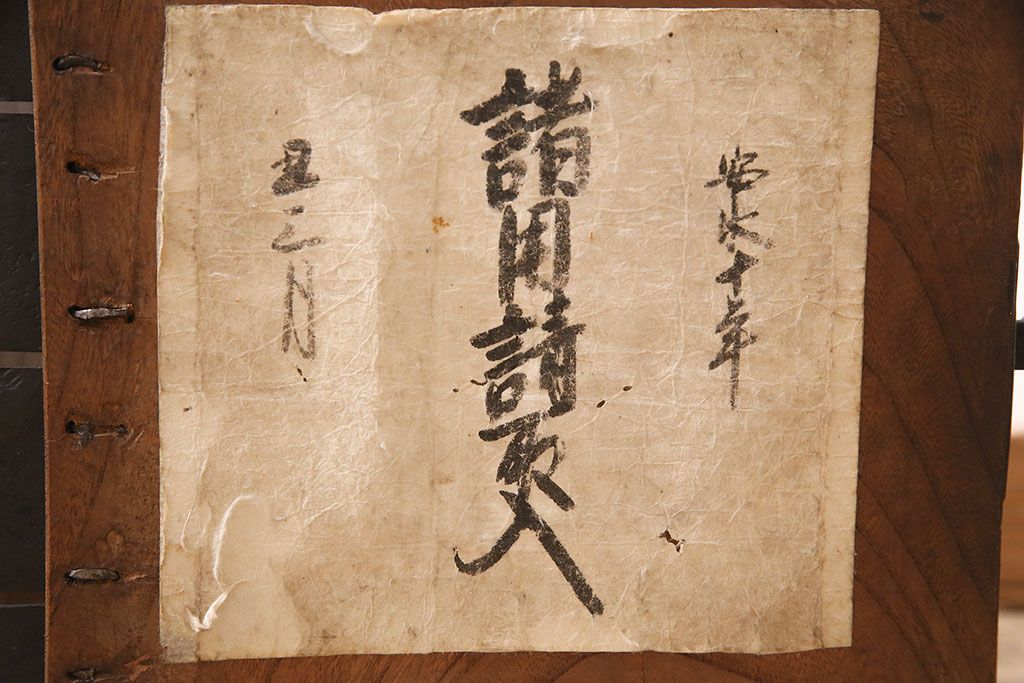 安永十年
諸用請取入
丑三月